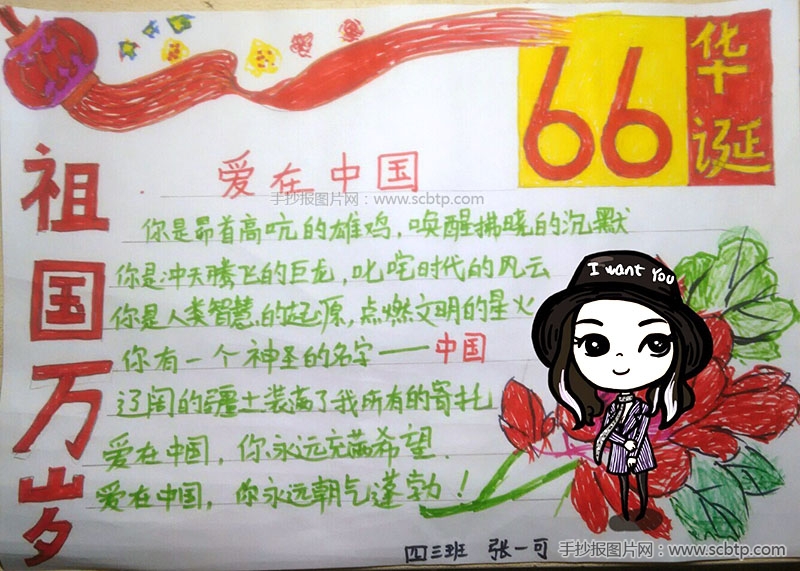 66
华诞
祖国万岁
爱在中国
手抄报图片网：www.scbtp.com
你是昂首高吭的雄鸡，唤醒拂晓的沉默
你是冲天腾飞的巨龙，叱咤时代的风云
你是人类智慧的起原，点燃文明的星火
你有一个神圣的名字——中国
辽阔的疆土装满了我所有的寄托
爱在中国，你永远充满希望.
爱在中国，你永远朝气蓬勃！
I want You
四三班 张一可
手抄报图片网：www.scbtp.com